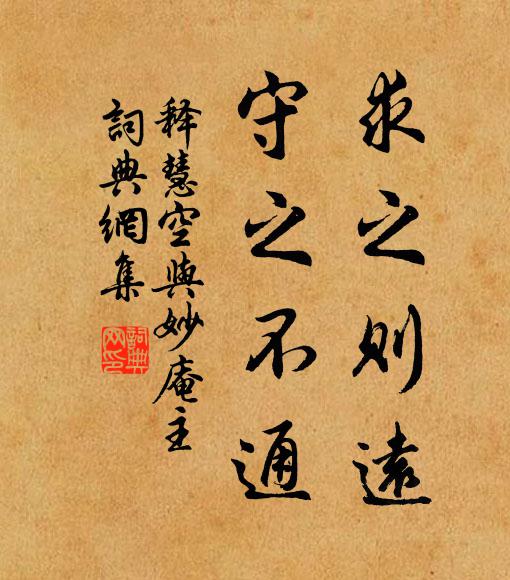 求之则遠
守之不通
释慧空與妙庵主
詞典網集
詞典网印